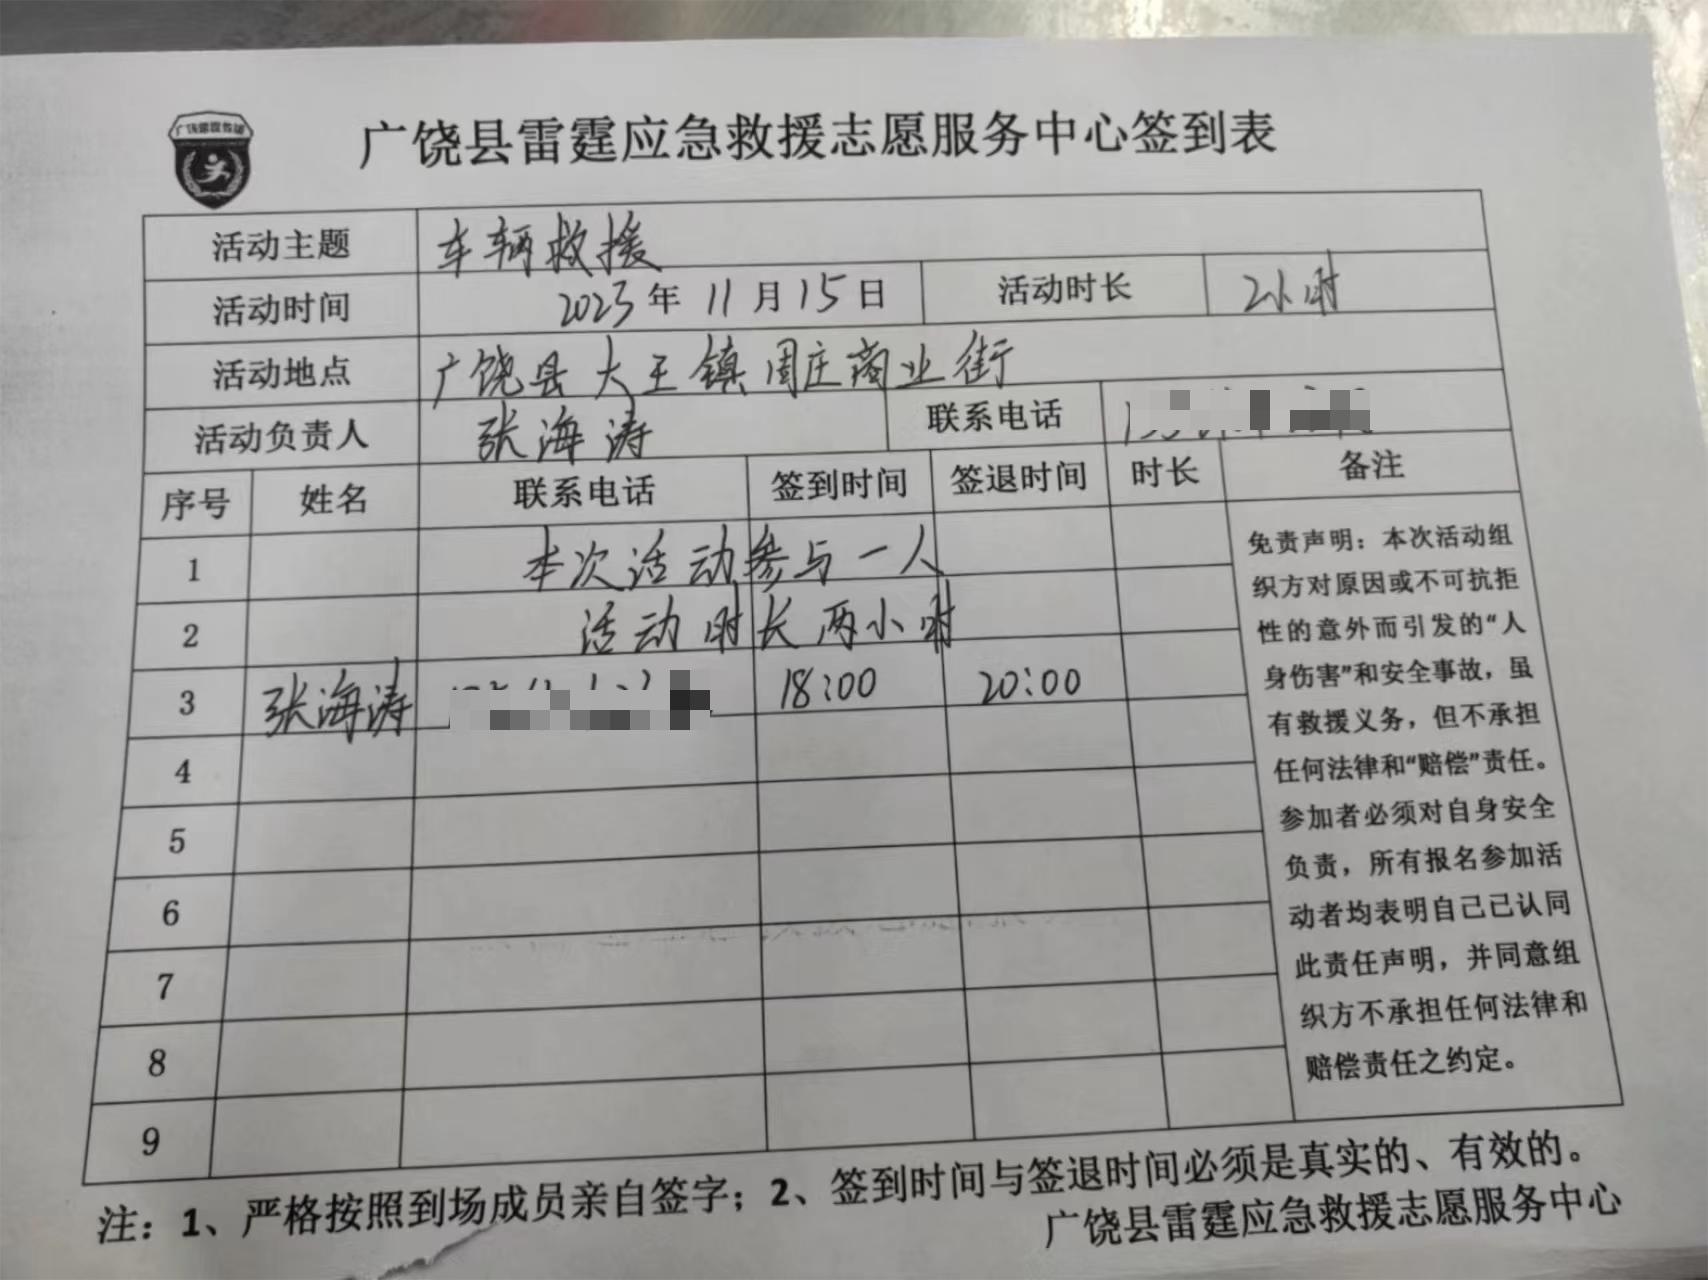 广饶县雷霆应急救援志愿服务中心签到表
活动主题 车辆救援
活动时间 2023年11月15日 活动时长 2小时
活动地点 广饶县大王镇周庄商业街
活动负责人 张海涛 联系电话
序号 姓名 联系电话 签到时间 签退时间 时长 备注
1 本次活动参与一人
2 活动时长两小时
3 张海涛 18:00 20:00
4
5
6
7
8
9
免责声明：本次活动组
织方对原因或不可抗拒
性的意外而引发的“人
身伤害”和安全事故，虽
有救援义务，但不承担
任何法律和“赔偿”责任。
参加者必须对自身安全
负责，所有报名参加活
动者均表明自己已认同
此责任声明，并同意组
织方不承担任何法律和
赔偿责任之约定。
注：1、严格按照到场成员亲自签字；2、签到时间与签退时间必须是真实的、有效的。
广饶县雷霆应急救援志愿服务中心